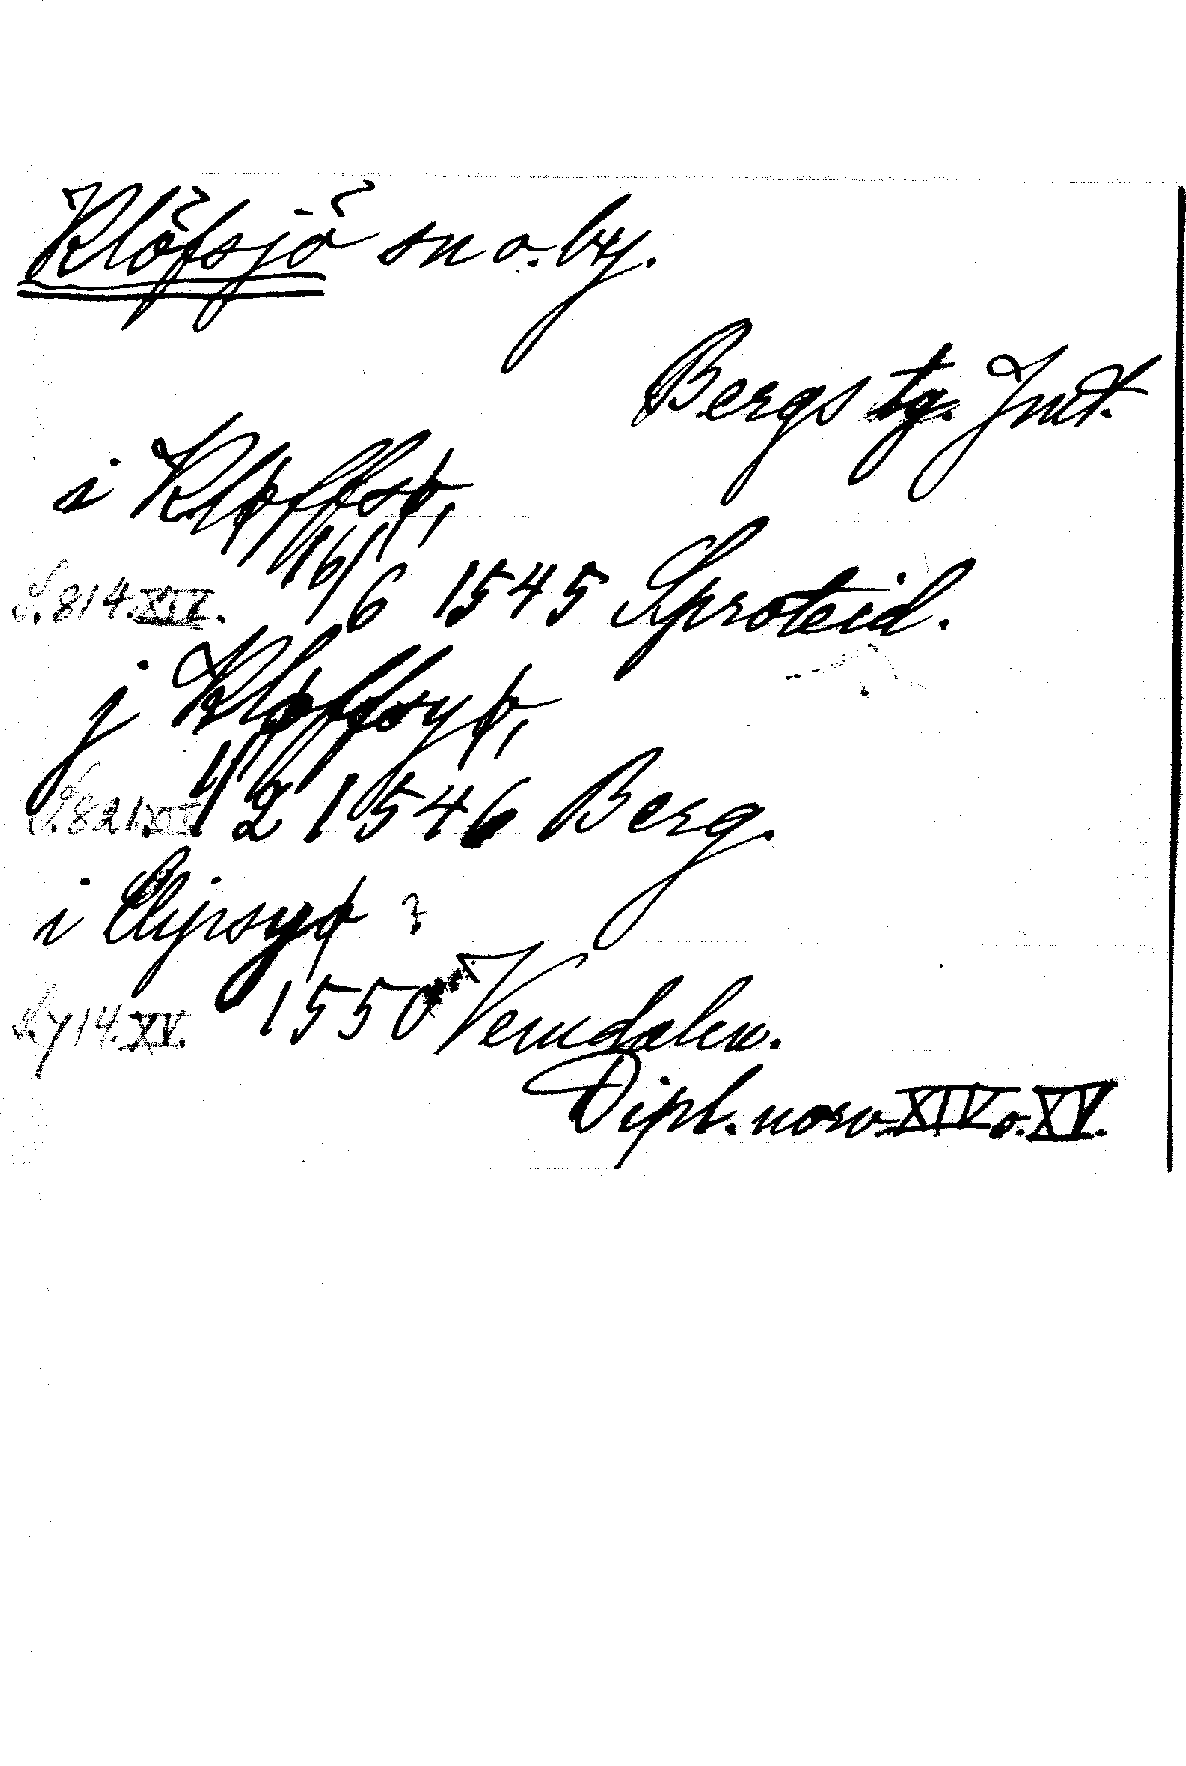 Klöfsjö sn o. by.
Bergs tg. Jmt.
i Kløffsø,
16/6 1545 Sproteid.
S. 814. XIV.
j Kløffsyø,
1/2 1546 Berg.
S. 821. XIV
i Clyrsyø ?
1550 Vemdalen.
S. 714. XV.
Dipl. norv XIV o. XV.